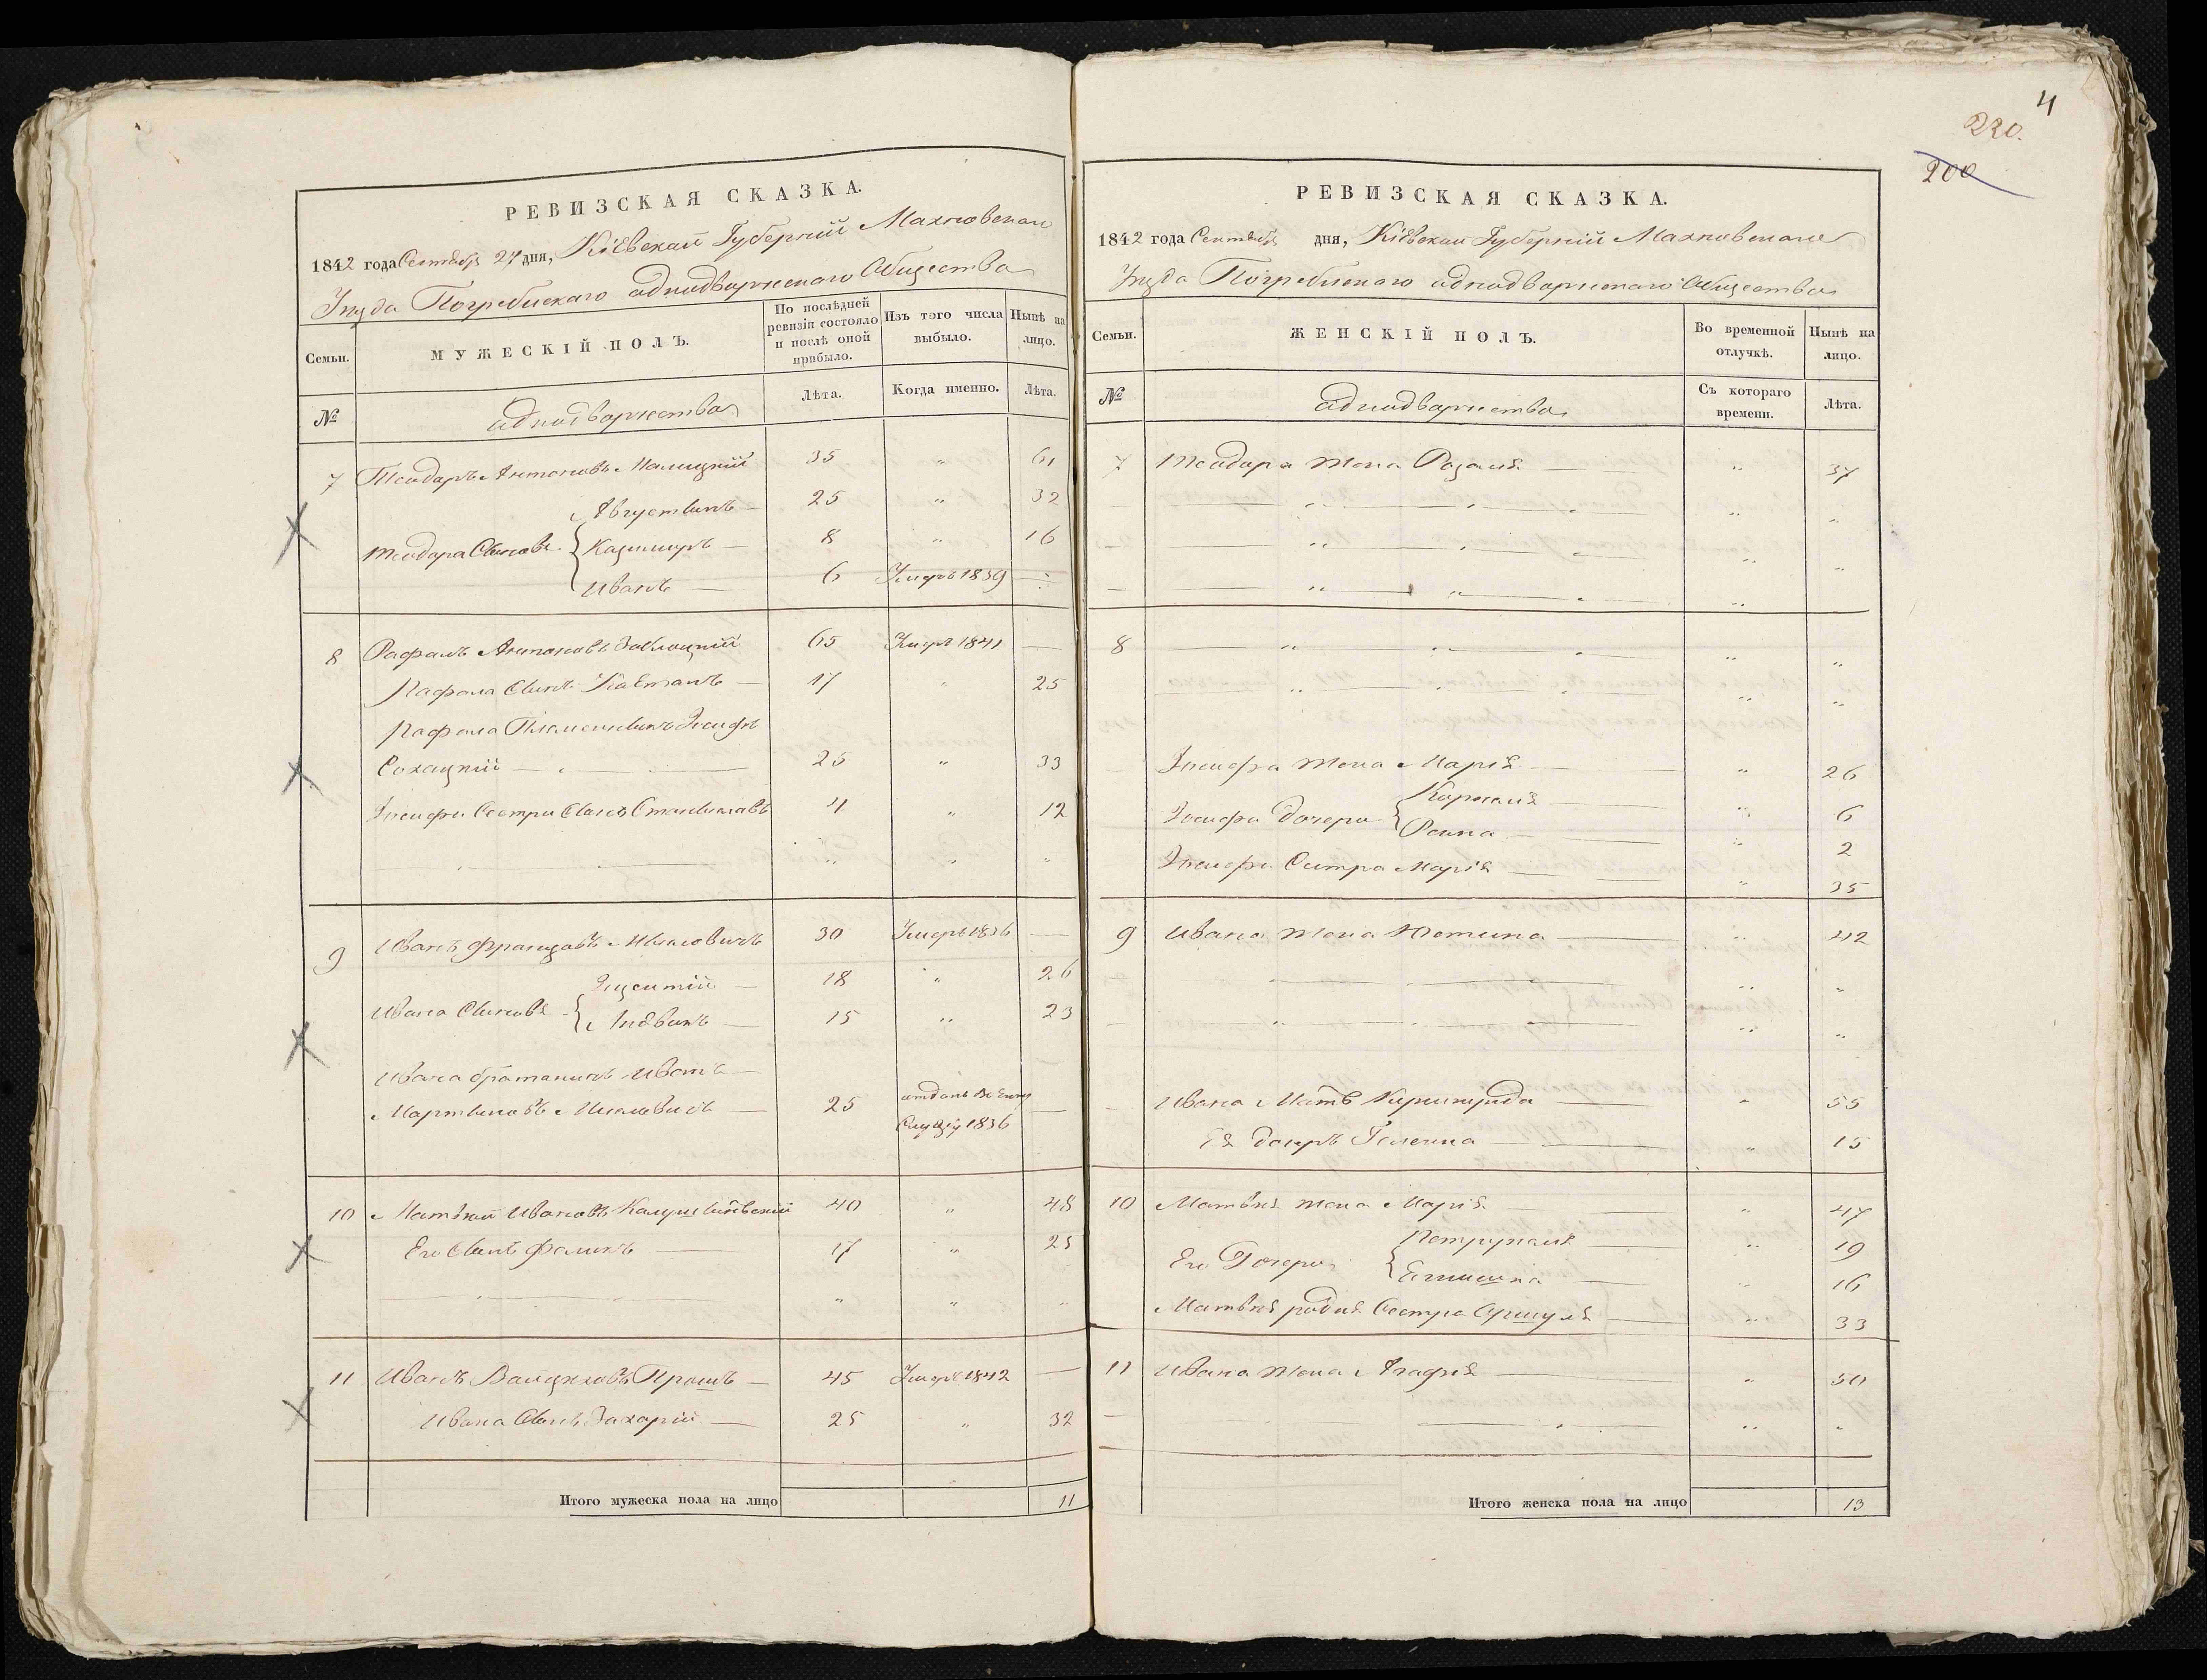 4
220.
200
РЕВИЗСКАЯ СКАЗКА.
1842 года Сентября 27 дня, Кіевской Губерніи Махновскаго
Уезда Погребискаго однодворческаго Общества
Семьи.
МУЖЕСКІЙ ПОЛЪ.
По послѣдней ревизіи состояло и послѣ оной прибыло.
Изъ того числа выбыло.
Нынѣ на лицо.
№
однодворчества
Лѣта.
Когда именно.
Лѣта.
7 Теодоръ Антоновъ 35 " 61
Августинъ — 25 " 32
Теодора Синове { Казимиръ — 8 " 16
Иванъ — 6 Умеръ 1839 —
8 Рафалъ Антоновъ Заблоцкій 65 Умеръ 1841 —
Рафала Синъ Каетанъ — 17 " 25
Рафала Племенникъ Іосифъ
Сохацкій — 25 " 33
Іосифа Сестри Синъ Станиславъ 4 " 12
" " "
9 Иванъ Францовъ 30 Умеръ 1836 —
18 " 26
Ивана Синовя { 15 " 23
Ивана братаникъ Иванъ —
Мартиновъ — 25 отданъ
Службу 1836 —
10 Матвѣй Ивановъ 40 " 48
Его Синъ Феликъ — 17 " 25
" " "
11 Иванъ 45 Умеръ 1842 —
Ивана Синъ Захарій — 25 " 32
Итого мужеска пола на лицо 11
РЕВИЗСКАЯ СКАЗКА.
1842 года Сентября дня, Кіевской Губерніи Махновскаго
Уезда Погребискаго однодворческаго Общества
Семьи.
ЖЕНСКІЙ ПОЛЪ.
Во временной отлучкѣ.
Нынѣ на лицо.
№
однодворчества
Съ котораго времени.
Лѣта.
7 Теодора жена Розалія — " 37
8 " " " "
Іосифа жена Марія — " 26
Іосифа дочери { Каролія — " 6
— " 2
Іосифа Систра Марія — " 35
9 Ивана жена Юстина — " 42
Ивана Матъ — " 55
Ея дочръ Гелена — " 15
10 Матвѣя жена Марія — " 47
Его Дочери { Петрунеля — " 19
— " 16
Матвѣя родня Сестра Уршуля — " 33
11 Ивана жена Агафія — " 50
Итого женска пола на лицо 13